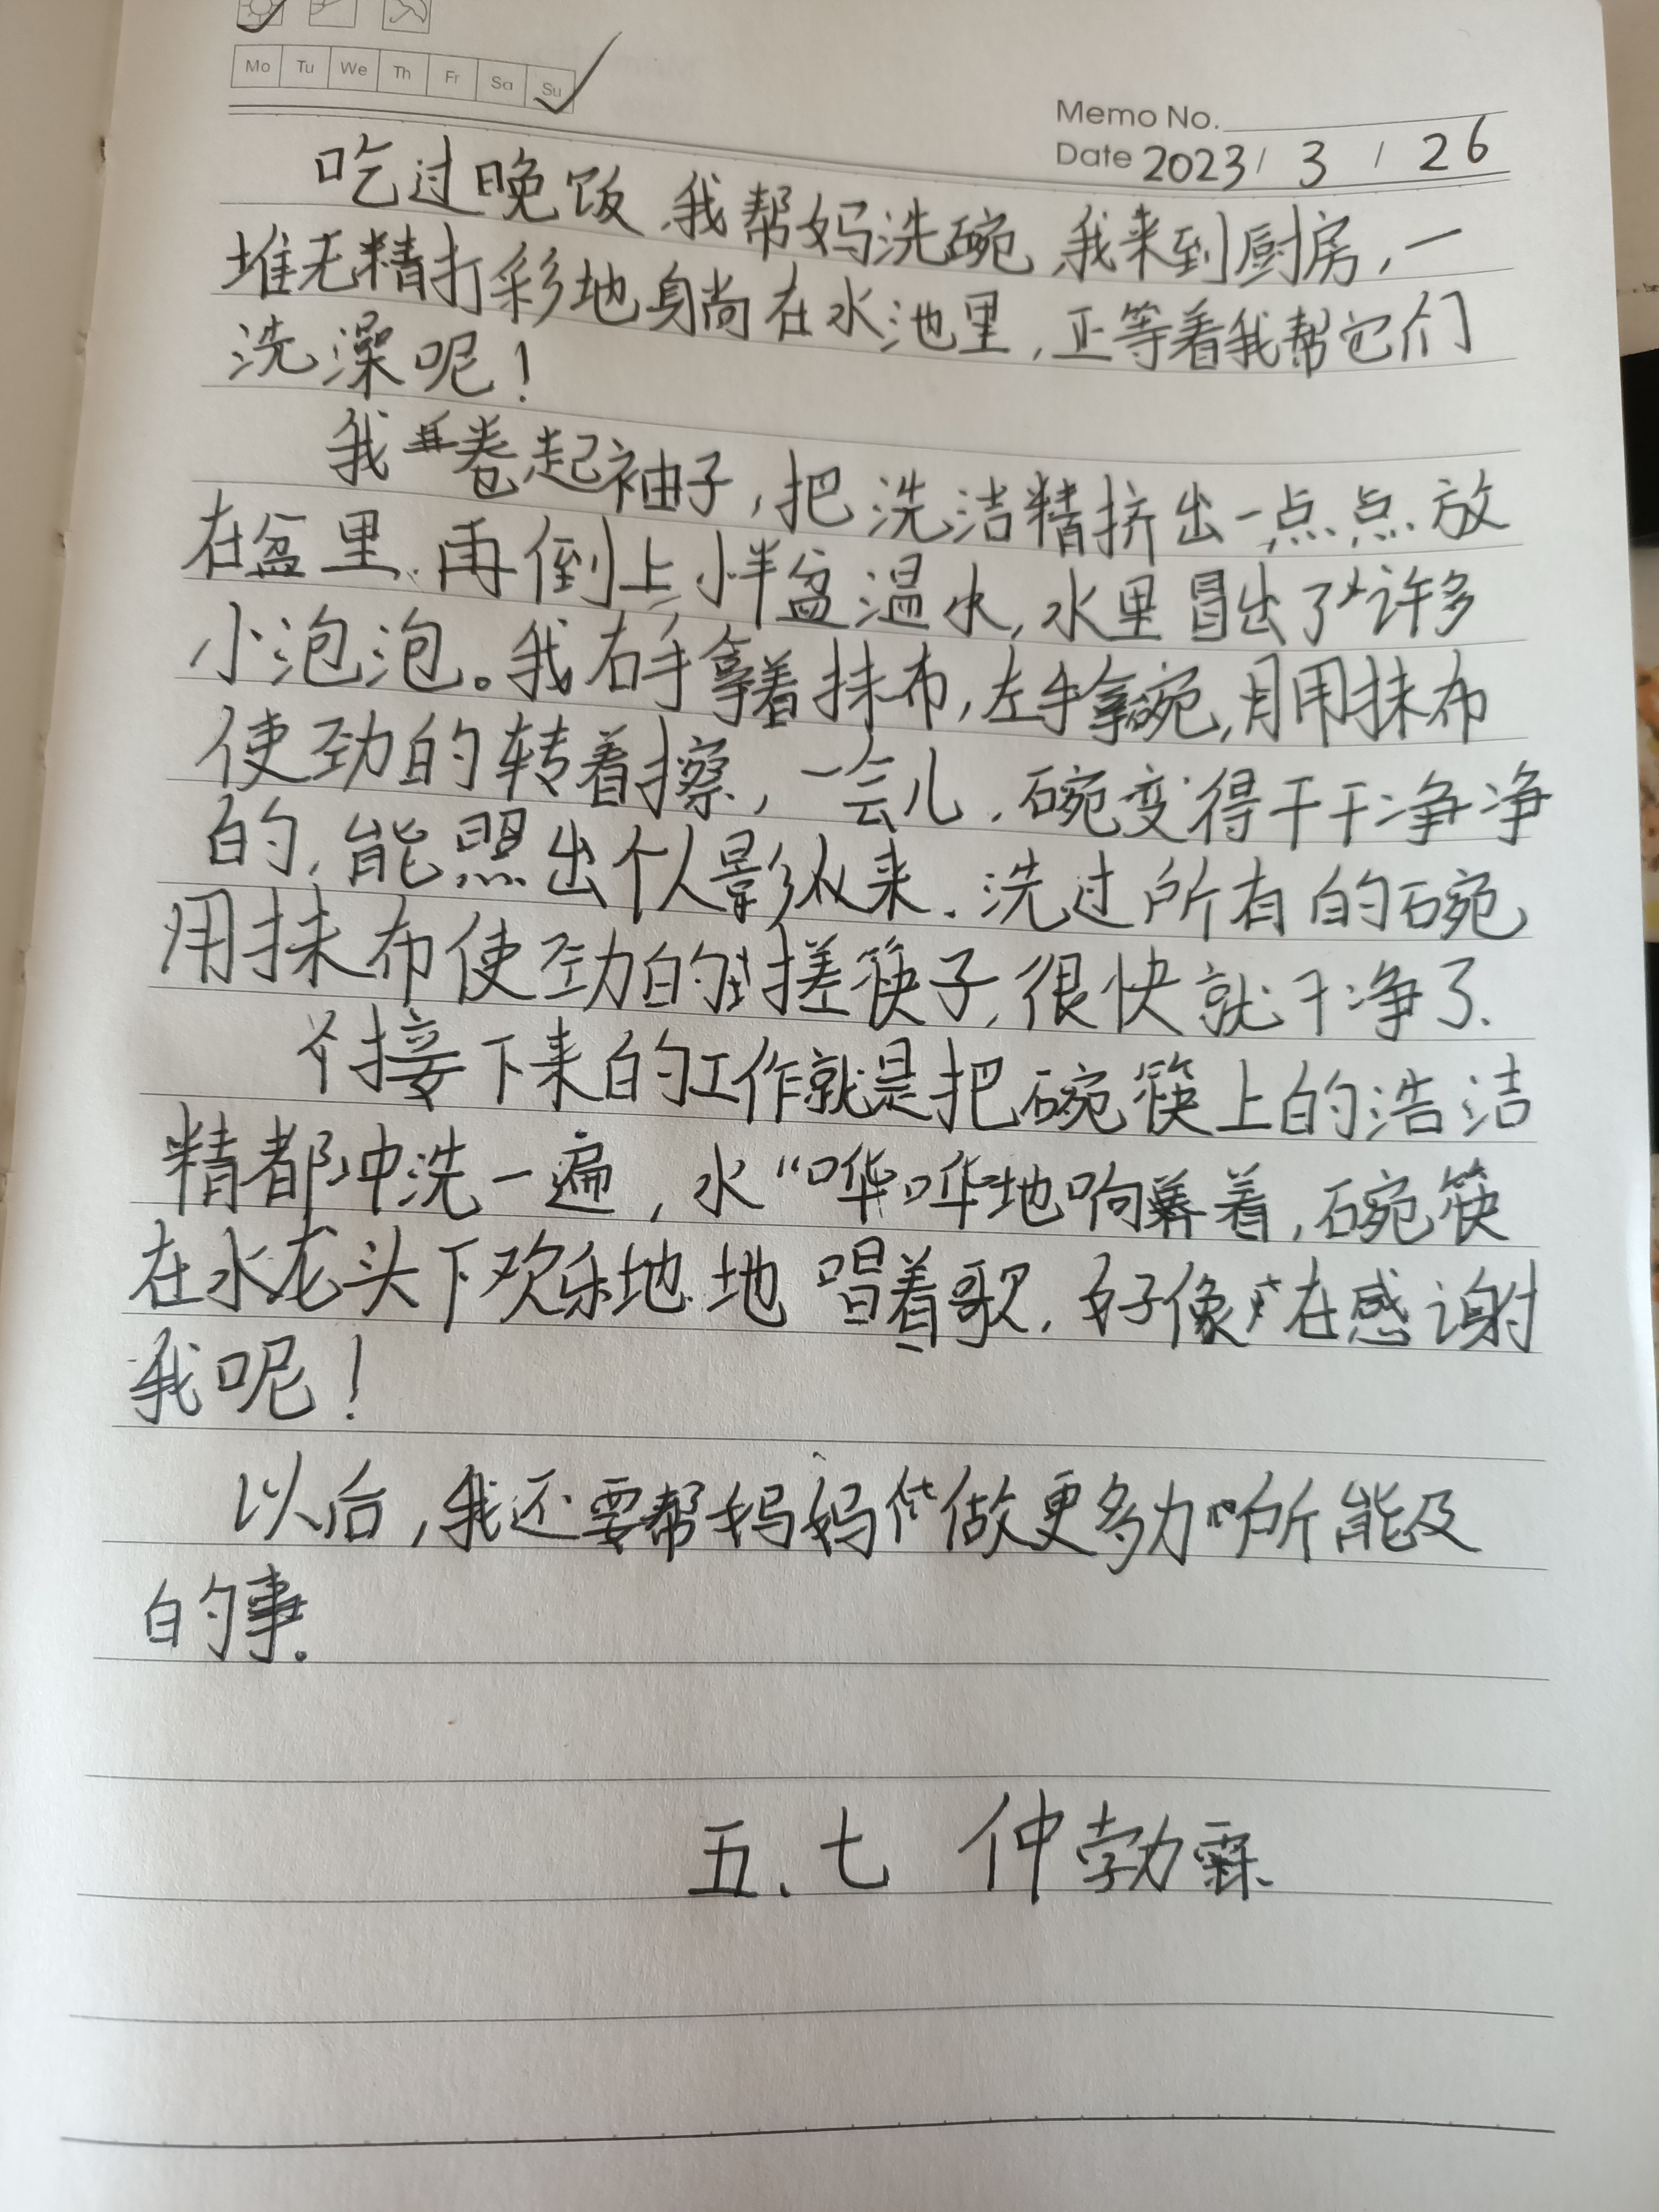 Mo Tu We Th Fr Sa Su
Memo No.
Date 2023 / 3 / 26
吃过晚饭、我帮妈洗碗、我来到厨房,一
堆无精打彩地躺在水池里,正等着我帮它们
洗澡呢!
我卷起袖子,把洗洁精挤出一点点放
在盆里、再倒上小半盆温水,水里冒出了许多
小泡泡。我右手拿着抹布,左手拿碗,用抹布
使劲的转着擦,一会儿、碗变得干干净净
的,能照出个人影从来、洗过所有的碗
用抹布使劲的搓筷子,很快就干净了、
接下来的工作就是把碗筷上的浩洁
精都冲洗一遍,水“哗哗”地响着,碗筷
在水龙头下欢乐地地唱着歌,好像在感谢
我呢!
以后,我还要帮妈妈做更多力所能及
的事。
五、七 仲勃霖